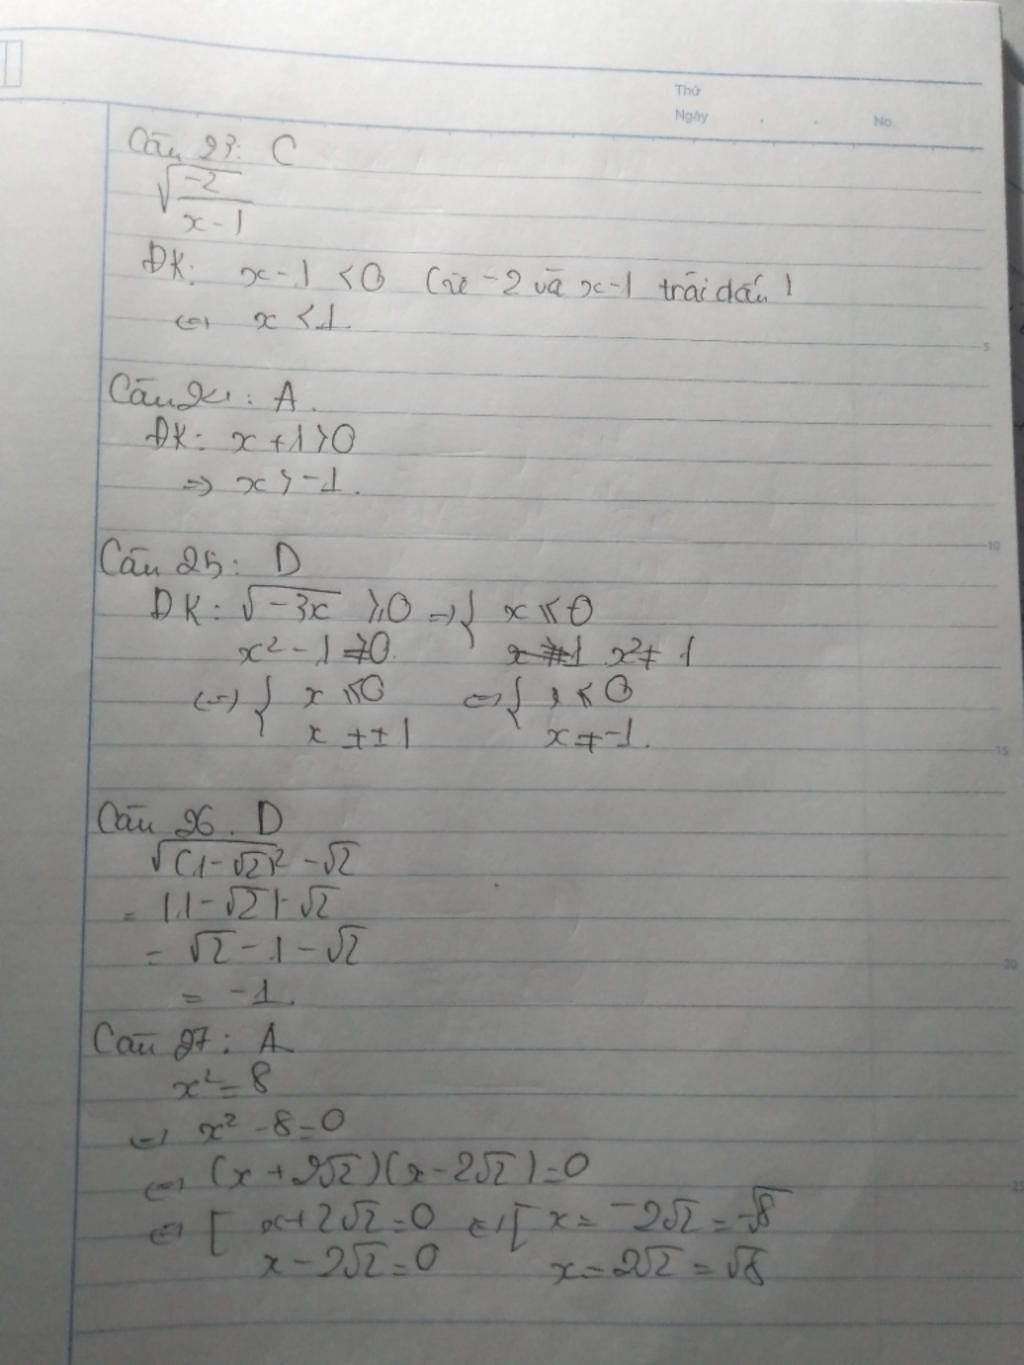 Thứ
Ngày . . No.
Câu 23: C
√(-2/(x-1))
ĐK: x-1 <0 (vì -2 và x-1 trái dấu)
<=> x <1.
5
Câu 24: A.
ĐK: x+1>0
=> x > -1.
10
Câu 25: D
ĐK: √(-3x) ≥0 => { x ≤ 0
x² - 1 ≠0. x ≠ 1 x² ≠ 1
<=> { x ≤0 <=> { x ≤ 0
x ≠ ±1 x ≠ -1.
15
Câu 26. D
√((1-√2)²) -√2
= |1-√2|-√2
= √2 - 1 - √2
20
= -1.
Câu 27: A
x² = 8
<=> x² - 8 = 0
<=> (x + 2√2)(x - 2√2) = 0
25
<=> [ x+2√2 = 0 <=> [ x = -2√2 = -√8
x - 2√2 = 0 x = 2√2 = √8